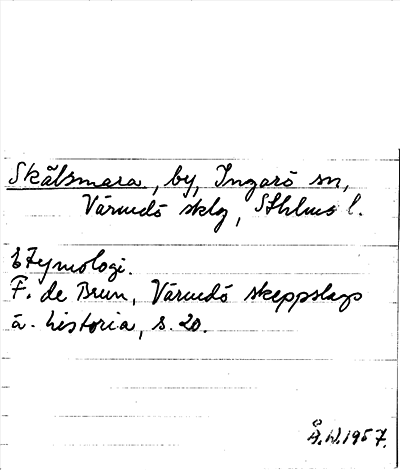 Skälsmara, by, Ingarö sn,
Värmdö sklg, Sthlms l.
Etymologi.
F. de Brun, Värmdö skeppslags
ä. historia, s. 20.
Å.W.1957.